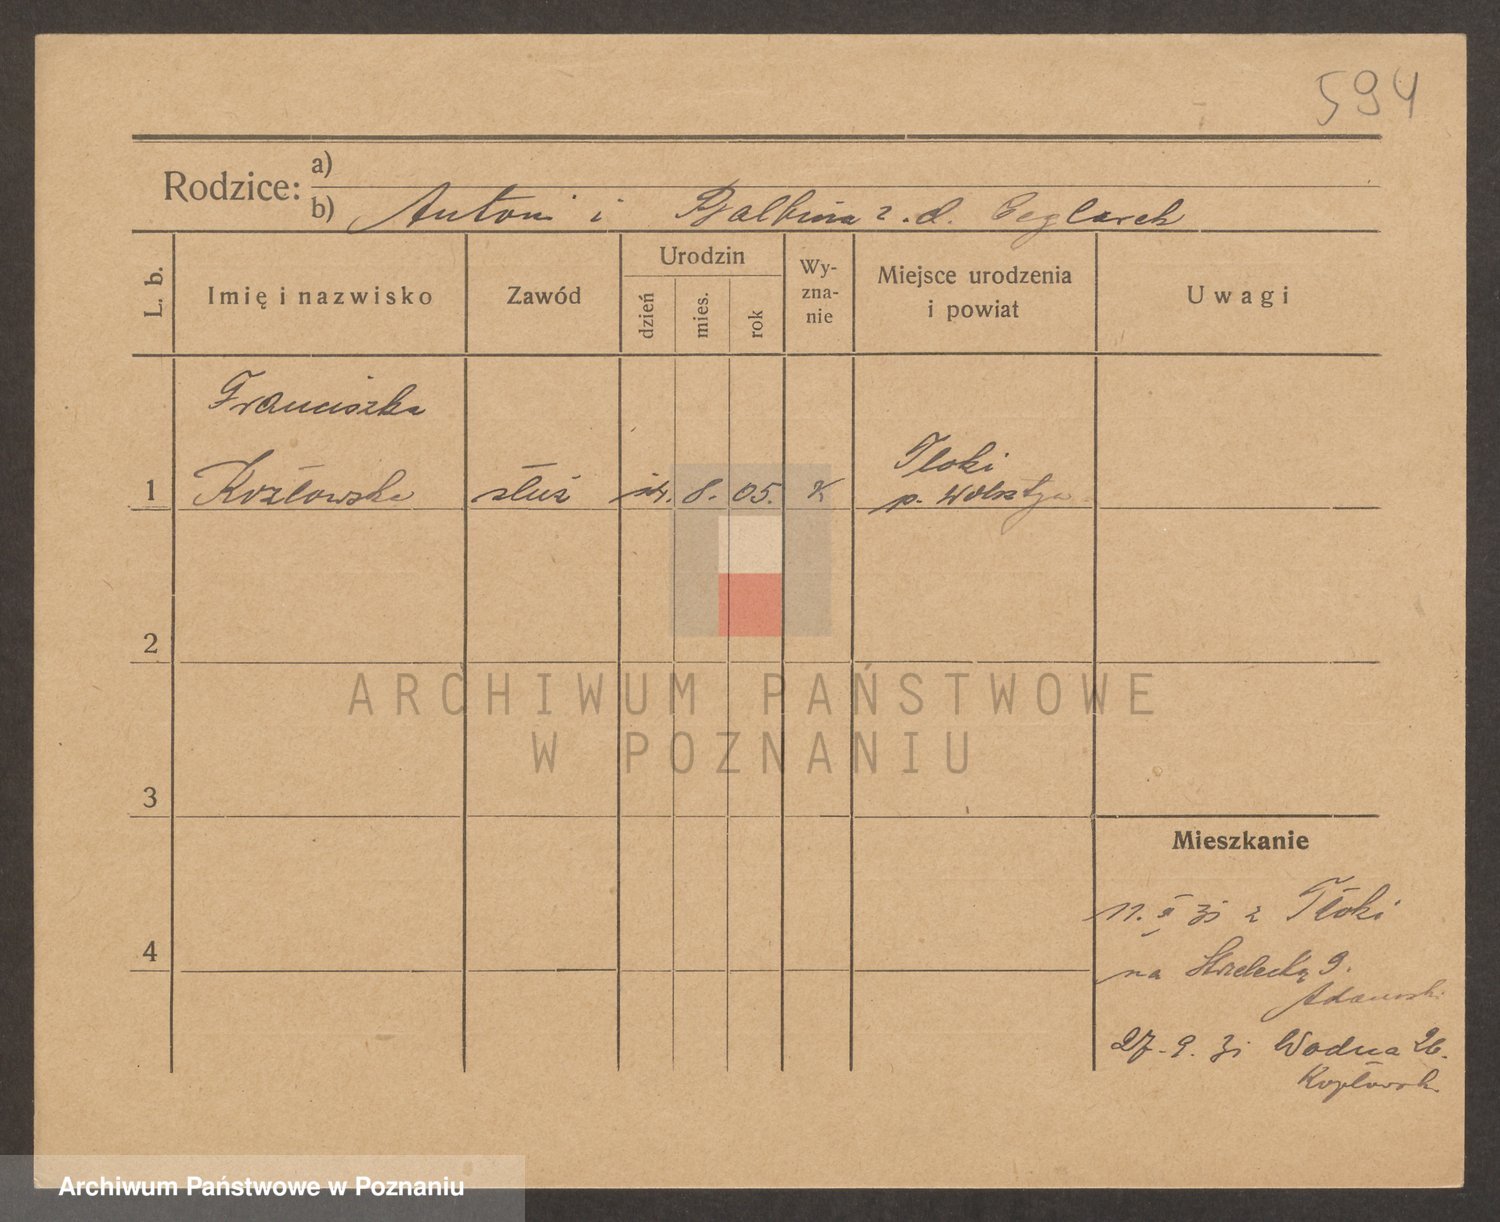 594
Rodzice: a)
b) Antoni i Balbina z.d. Ceglarek
L. b.
Imię i nazwisko
Zawód
Urodzin
dzień
mies.
rok
Wy-
zna-
nie
Miejsce urodzenia
i powiat
Uwagi
Franciszka
1 Kozłowska służ 8. 05. K
Tłoki
p. Wolsztyn
2
ARCHIWUM PAŃSTWOWE
W POZNANIU
3
Mieszkanie
11. 31 z Tłoki
4
na Strzelecką 9.
Adamski
27. 9. 31 Wodna 26.
Kozłowsk.
Archiwum Państwowe w Poznaniu